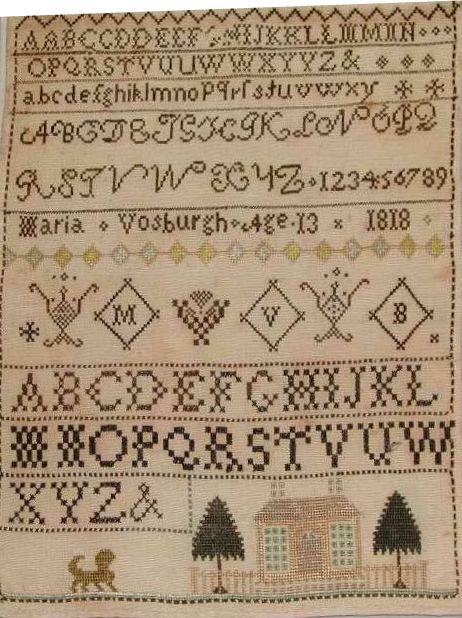 AABCCDDEEFGHIJKLLMMN
OPQRSTVUUWWXYVZ&
abcdefghiklmnopqrſstuvwxy
ABCDEFGHIKLNOPQ
RSTVWXYZ 123456789
Maria Vosburgh Age 13 1818
M V B
ABCDEFGHIJKL
MNOPQRSTVUW
XYZ&